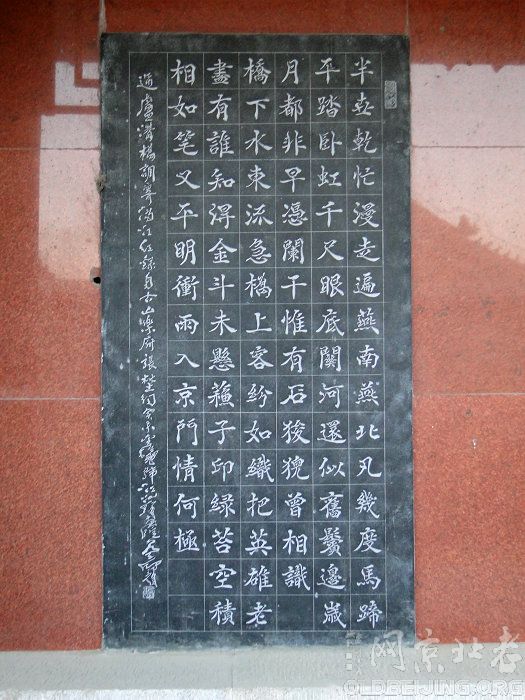 半世乾忙漫走遍燕南燕北凡幾度馬蹄
平踏卧虹千尺眼底關河還似舊鬢邊歲
月都非早憑闌干惟有石狻猊曾相識
橋下水東流急橋上客紛如織把英雄老
盡有誰知得金斗未懸蘓子印綠苔空積
相如笔又平明衝雨入京門情何極
過盧溝橋調寄滿江紅錄自古山樂府張埜
网京北老
OLDBEIJING.ORG